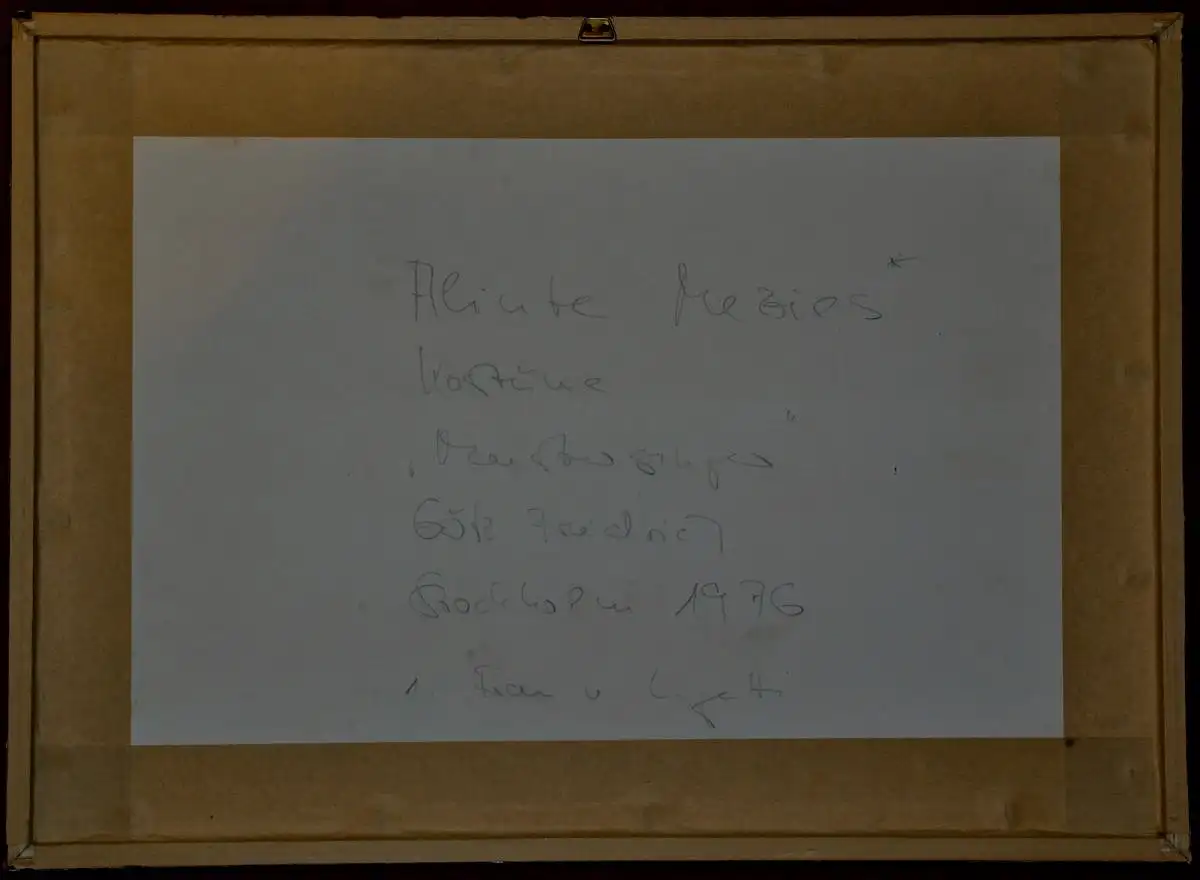 Aliute Mezies *
Kostüme
„Meistersinger"
Götz Friedrich
Stockholm 1976
Frau v Ligeti